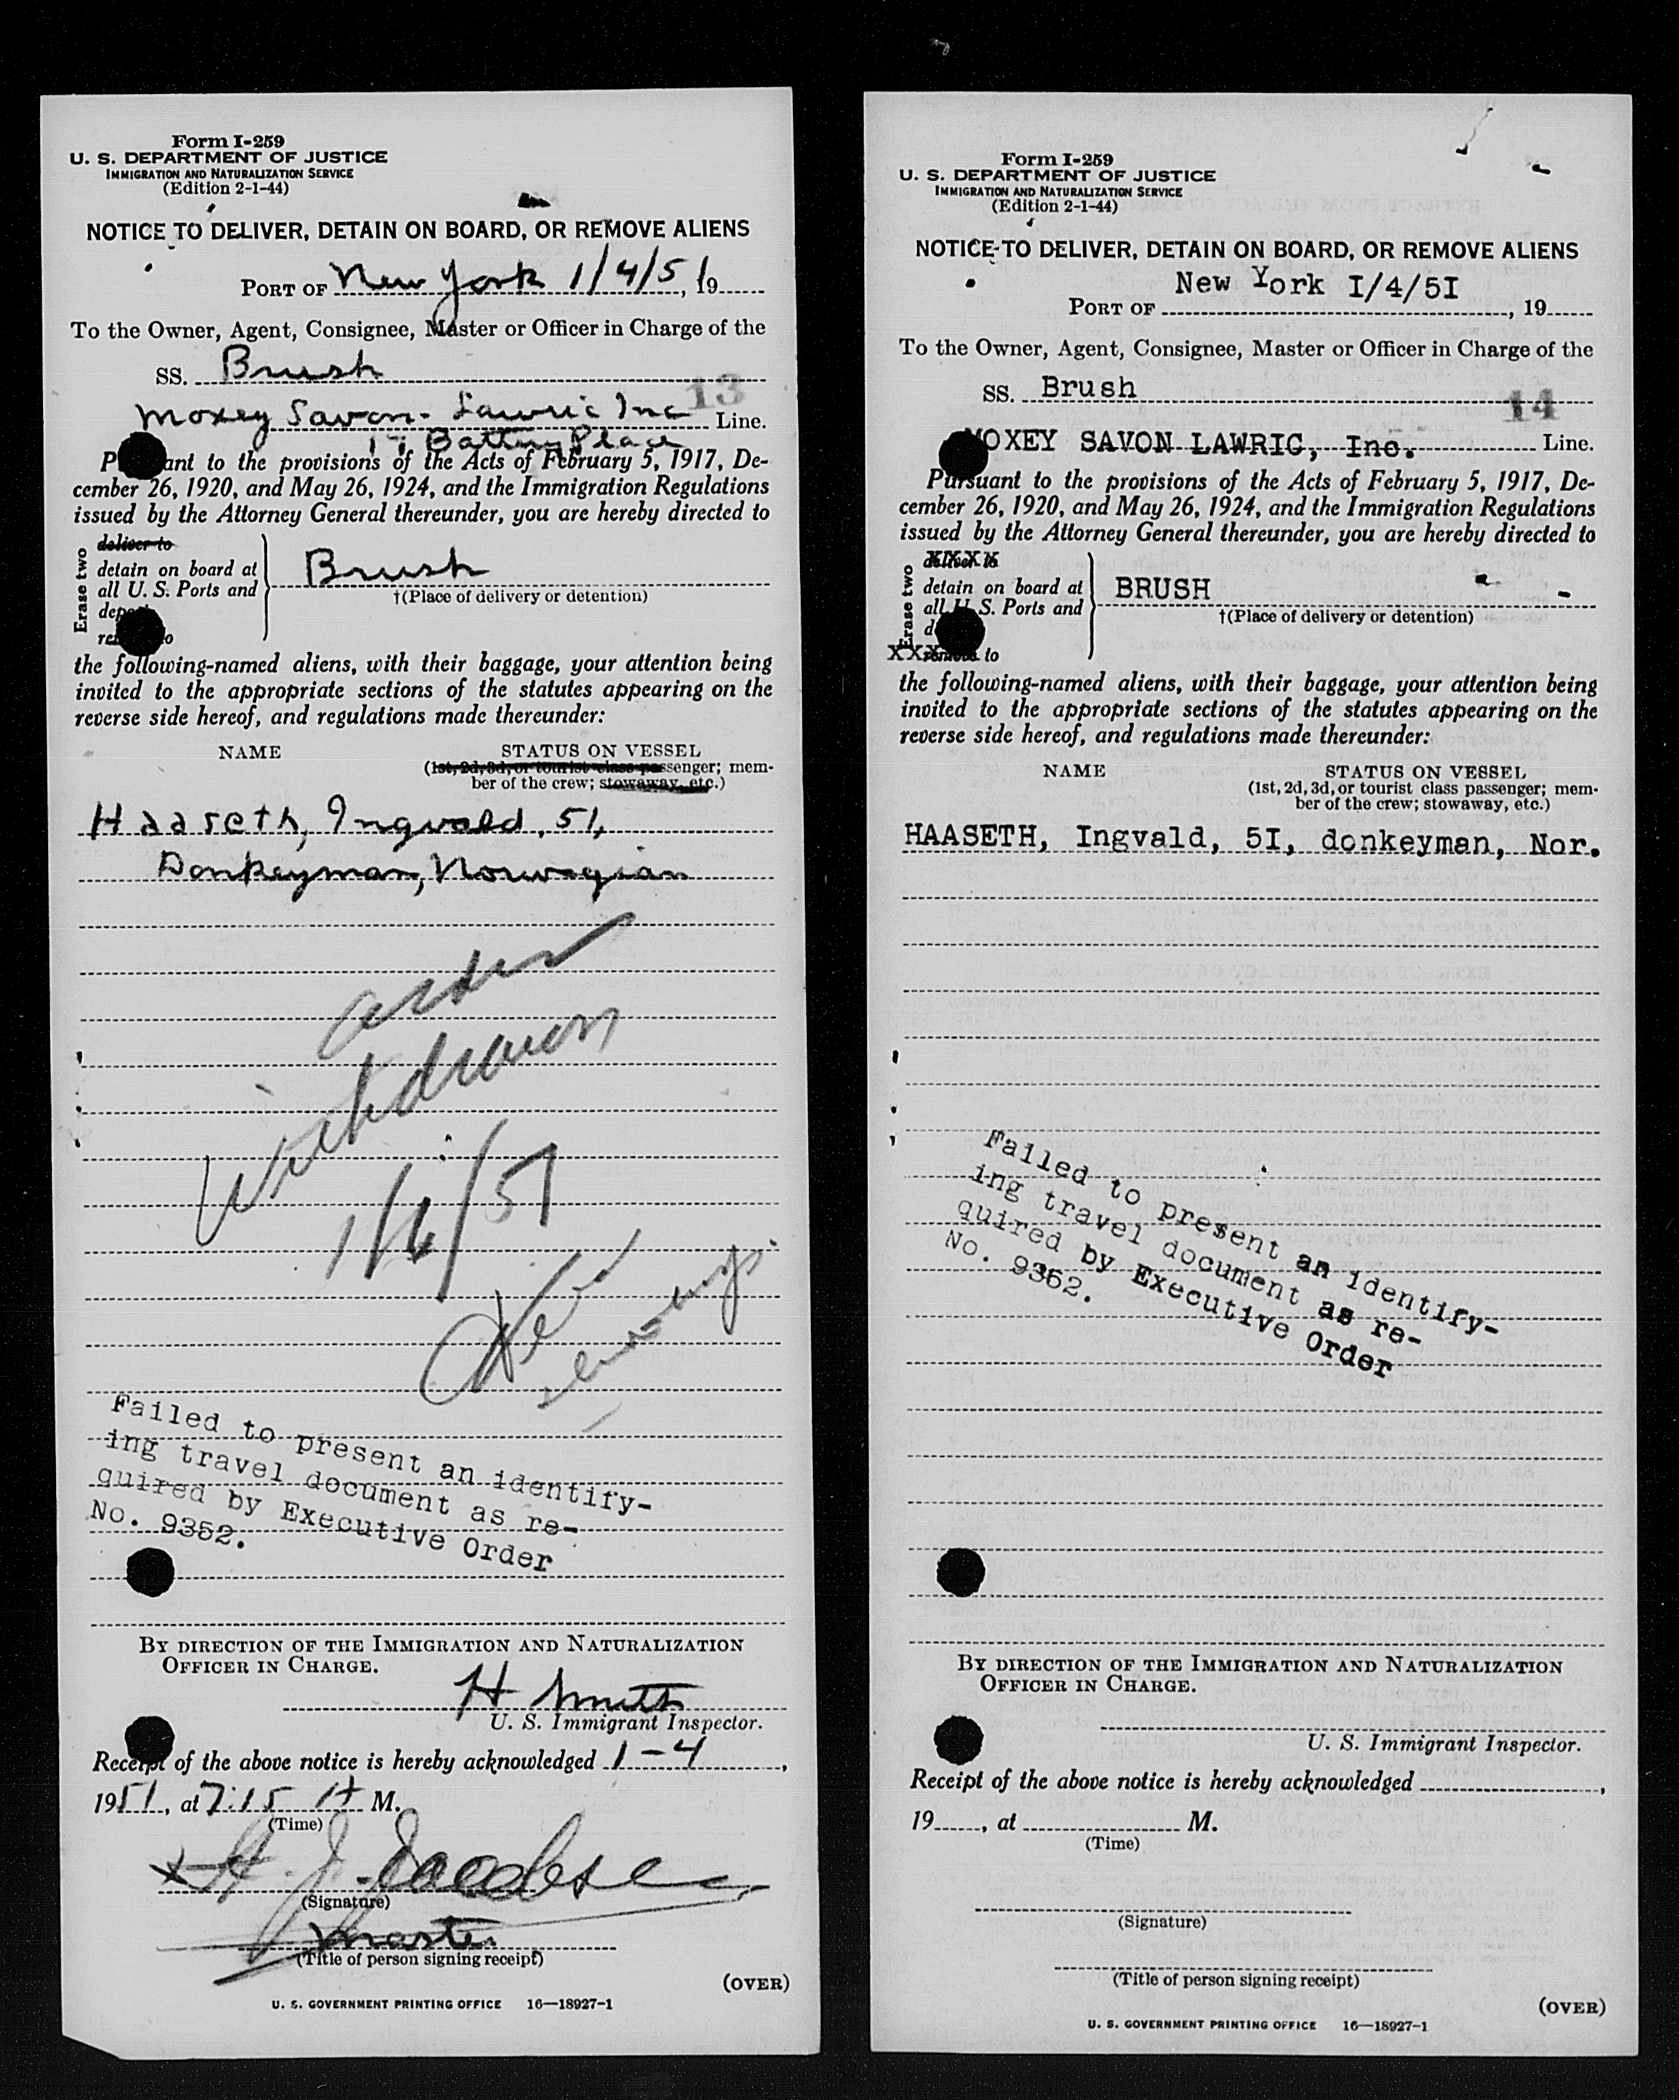 Form I-259
U. S. DEPARTMENT OF JUSTICE
IMMIGRATION AND NATURALIZATION SERVICE
(Edition 2-1-44)
NOTICE TO DELIVER, DETAIN ON BOARD, OR REMOVE ALIENS
PORT OF New York 1/4/51, 19
To the Owner, Agent, Consignee, Master or Officer in Charge of the
SS. Brush
13
Moxey Savon - Lawric Inc Line.
17 Battery Place
Pursuant to the provisions of the Acts of February 5, 1917, De-
cember 26, 1920, and May 26, 1924, and the Immigration Regulations
issued by the Attorney General thereunder, you are hereby directed to
Erase two
deliver to
detain on board at
all U. S. Ports and
Brush
†(Place of delivery or detention)
the following-named aliens, with their baggage, your attention being
invited to the appropriate sections of the statutes appearing on the
reverse side hereof, and regulations made thereunder:
NAME STATUS ON VESSEL
(1st, 2d, 3d, or tourist class passenger; mem-
ber of the crew; stowaway, etc.)
Haaseth, Ingvald, 51,
Donkeyman, Norwegian
order
Withdrawn
1/6/51
Failed to present an identify-
ing travel document as re-
quired by Executive Order
No. 9352.
BY DIRECTION OF THE IMMIGRATION AND NATURALIZATION
OFFICER IN CHARGE.
H Smith
U. S. Immigrant Inspector.
Receipt of the above notice is hereby acknowledged 1-4,
1951, at 7:15 A M.
(Time)
(Signature)
Master
(Title of person signing receipt)
(OVER)
U. S. GOVERNMENT PRINTING OFFICE 16—18927-1
Form I-259
U. S. DEPARTMENT OF JUSTICE
IMMIGRATION AND NATURALIZATION SERVICE
(Edition 2-1-44)
NOTICE TO DELIVER, DETAIN ON BOARD, OR REMOVE ALIENS
New York I/4/5I
PORT OF , 19
To the Owner, Agent, Consignee, Master or Officer in Charge of the
SS. Brush
14
MOXEY SAVON LAWRIG, Inc. Line.
Pursuant to the provisions of the Acts of February 5, 1917, De-
cember 26, 1920, and May 26, 1924, and the Immigration Regulations
issued by the Attorney General thereunder, you are hereby directed to
Erase two
detain on board at
all U. S. Ports and
BRUSH
†(Place of delivery or detention)
XXX remove to
the following-named aliens, with their baggage, your attention being
invited to the appropriate sections of the statutes appearing on the
reverse side hereof, and regulations made thereunder:
NAME STATUS ON VESSEL
(1st, 2d, 3d, or tourist class passenger; mem-
ber of the crew; stowaway, etc.)
HAASETH, Ingvald, 5I, donkeyman, Nor.
Failed to present an identify-
ing travel document as re-
quired by Executive Order
No. 9352.
BY DIRECTION OF THE IMMIGRATION AND NATURALIZATION
OFFICER IN CHARGE.
U. S. Immigrant Inspector.
Receipt of the above notice is hereby acknowledged ,
19 , at M.
(Time)
(Signature)
(Title of person signing receipt)
(OVER)
U. S. GOVERNMENT PRINTING OFFICE 16—18927-1